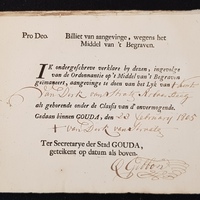 Pro Deo. Billiet van aangevinge, wegens het
Middel van 't Begraven.
IK ondergeschreve verklare by dezen, ingevolge
van de Ordonnantie op 't Middel van 't Begraven
geëmaneert, aangevinge te doen van het Lyk van 't kint
van Dirk van
als gehorende onder de Classis van d'onvermogende.
Gedaan binnen GOUDA, den 23 February 1805
van Dirk van
Ter Secretarye der Stad GOUDA,
geteikent op datum als boven.